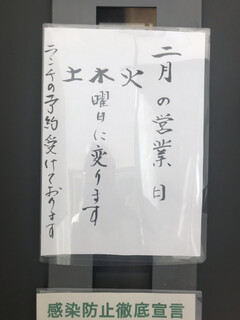 二月の営業日
火
木曜日に変ります
土
ランチの予約受けております
感染防止徹底宣言